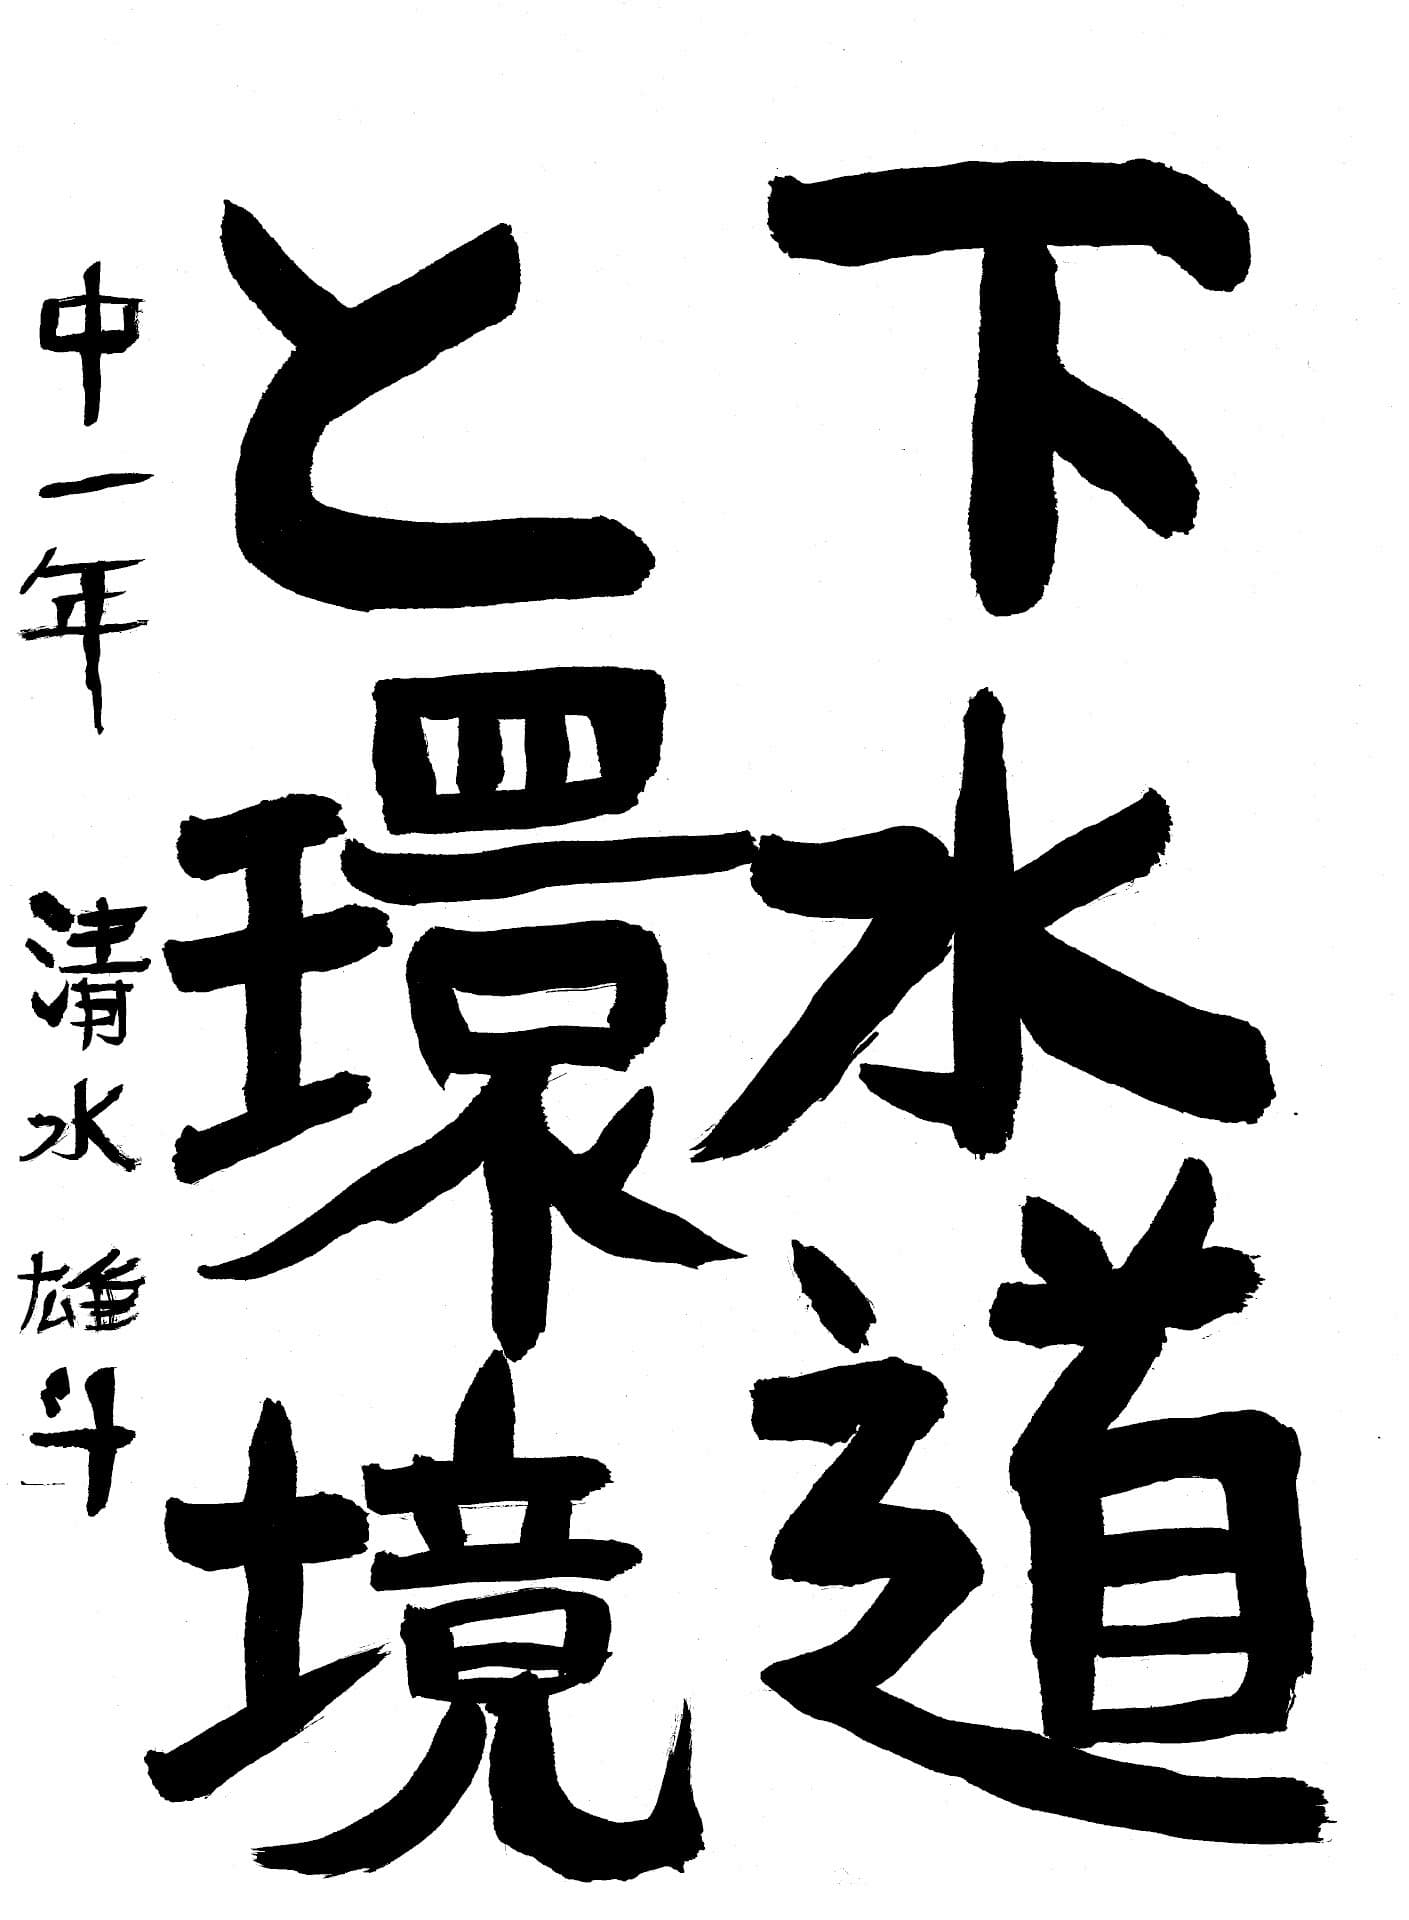 下水道
と環境
中一年 清水雄斗